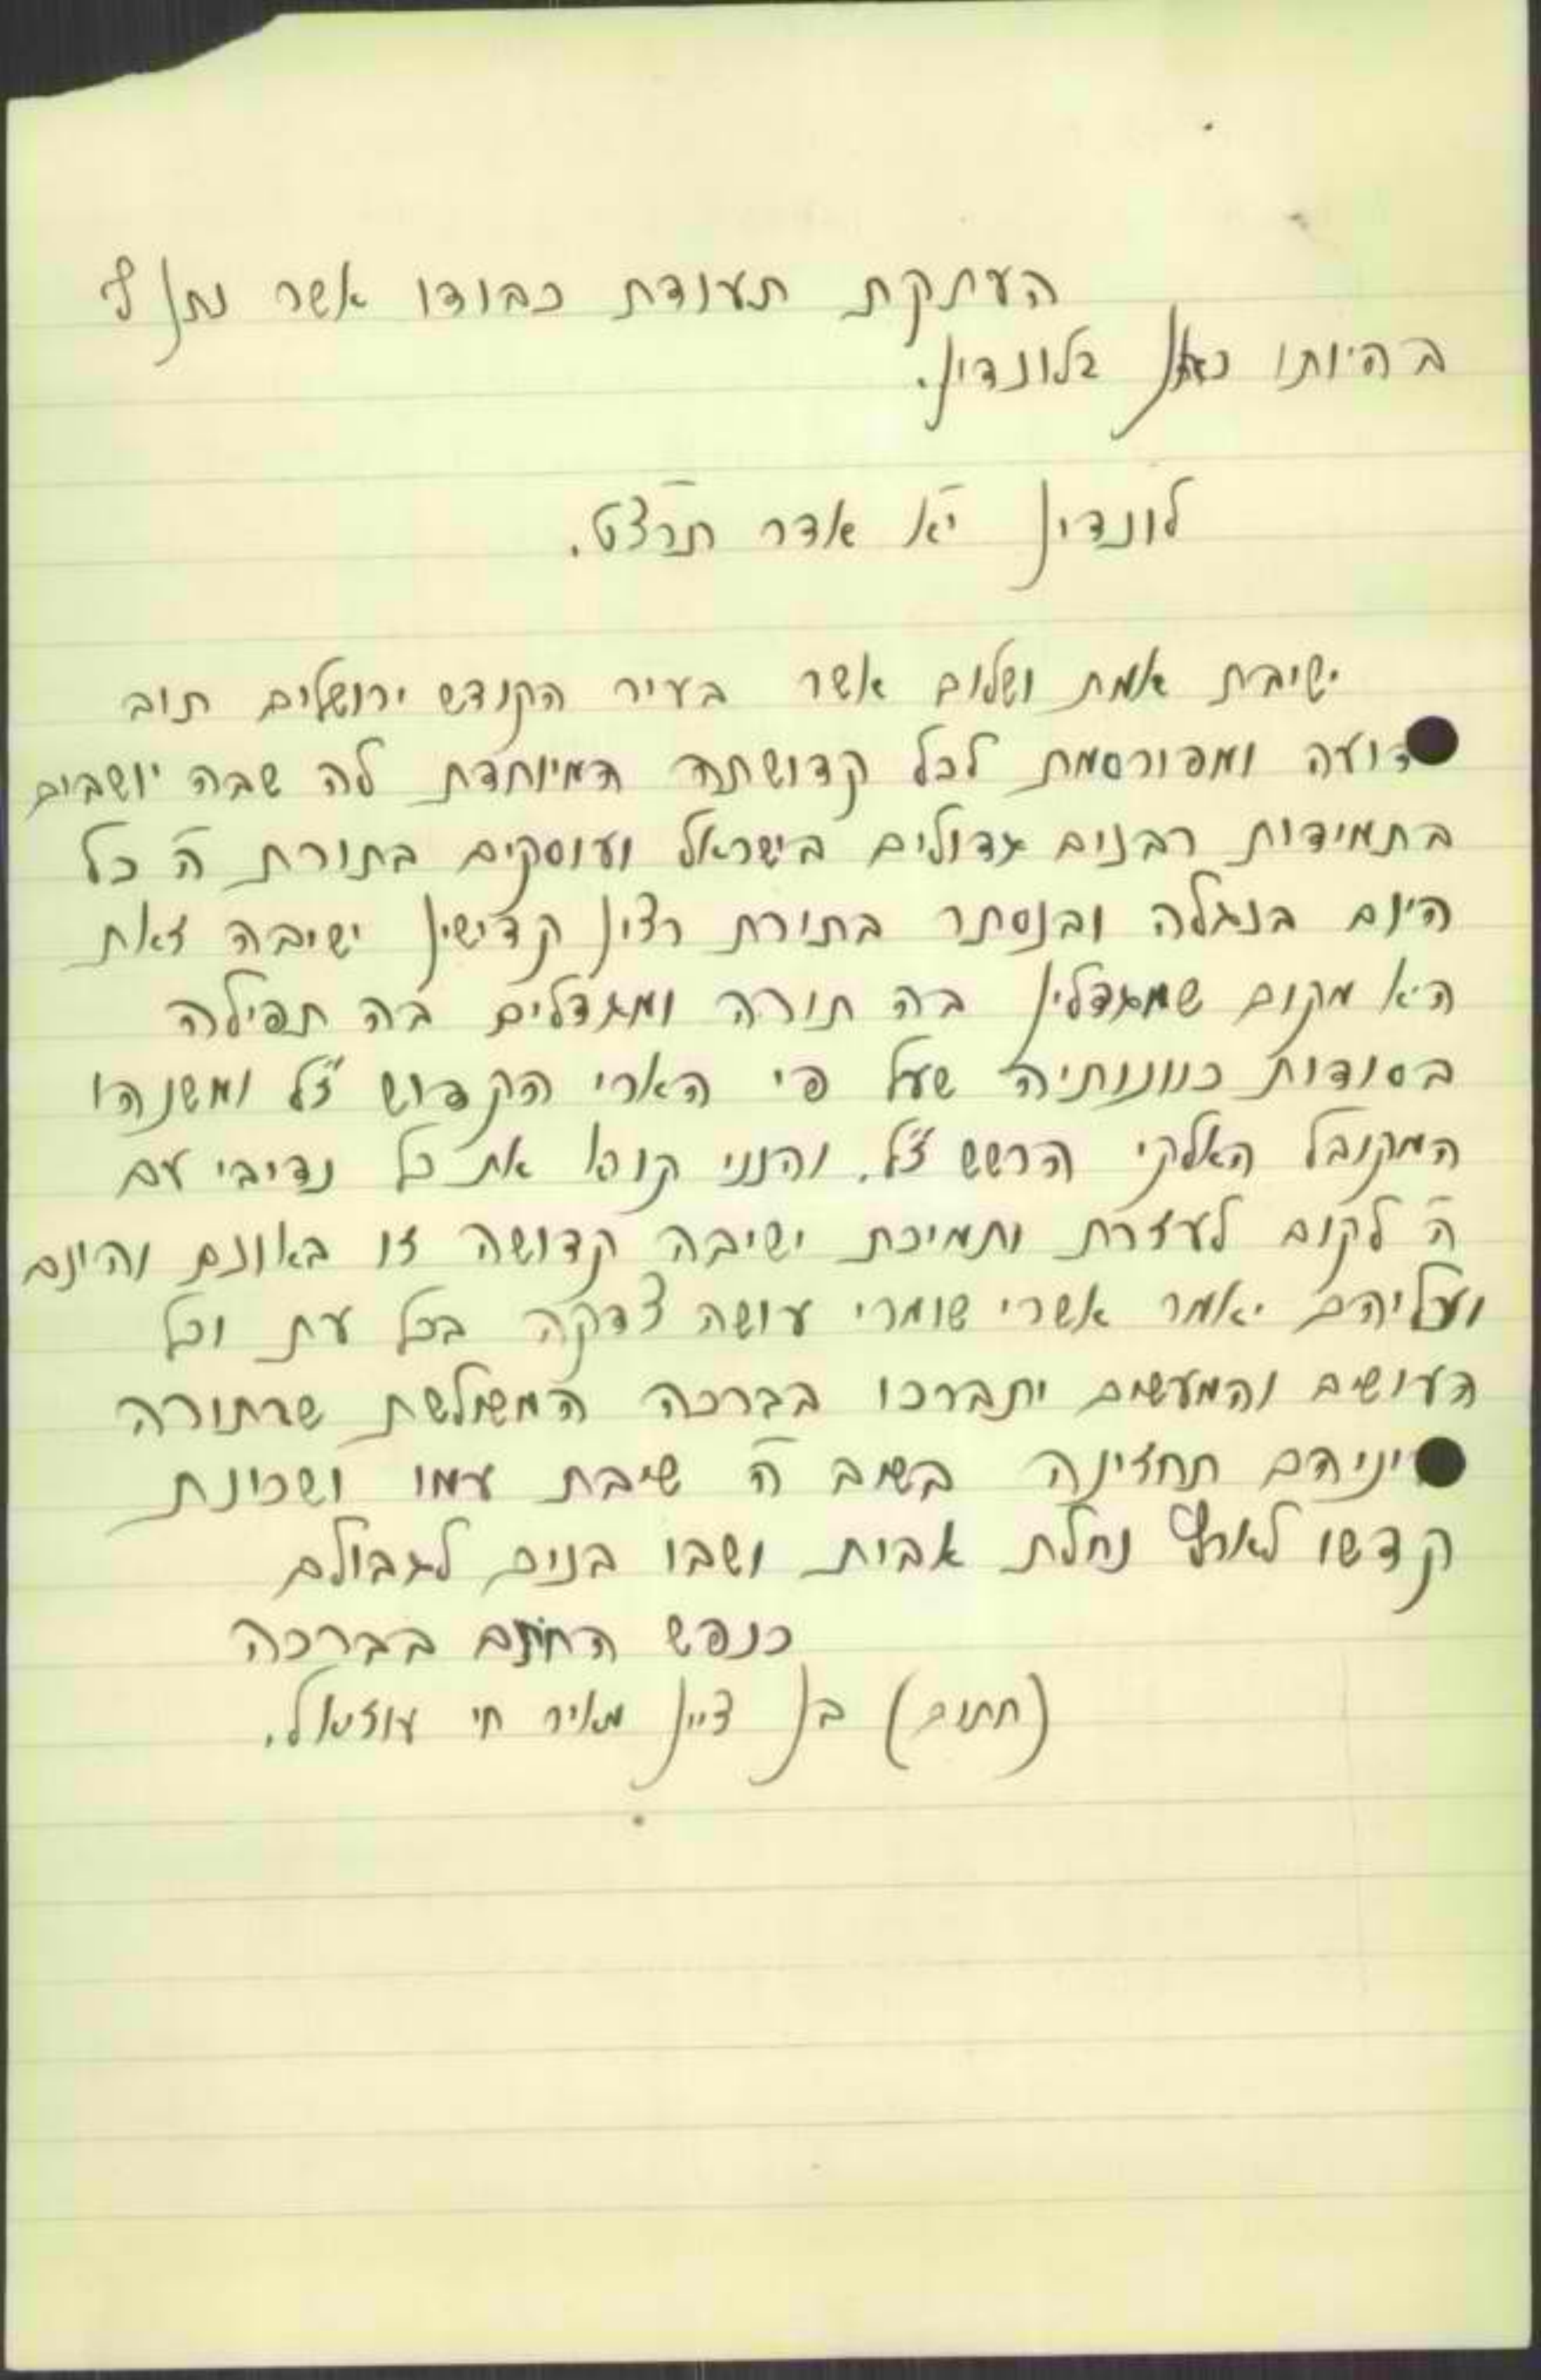 העתקת תעודת כבודו אשר נתן לי
בהיותו כאן בלונדין.
לונדין י"א אדר תרצ"ט.
ישיבת אמת ושלום אשר בעיר הקודש ירושלים תוב
ידועה ומפורסמת לכל קדושתה המיוחדת לה שבה יושבים
בתמידות רבנים גדולים בישראל ועוסקים בתורת ה' כל
היום בנגלה ובנסתר בתורת רזין קדישין ישיבה זאת
היא מקום שמגדלין בה תורה ומגדלים בה תפילה
בסודות כוונותיה שעל פי הארי הקדוש ז"ל ומשנהו
המקובל האלקי הרשש ז"ל. והנני קורא את כל נדיבי עם
ה' לקום לעזרת ותמיכת ישיבה קדושה זו באונם והונם
ועליהם יאמר אשרי שומרי עושה צדקה בכל עת וכל
העושים והמעשים יתברכו בברכה המשולשת שבתורה
ועיניהם תחזינה בשוב ה' שיבת עמו ושכינת
קדשו לארץ נחלת אבות ושבו בנים לגבולם
כנפש החותם בברכה
(חתום) בן ציון מאיר חי עוזיאל.